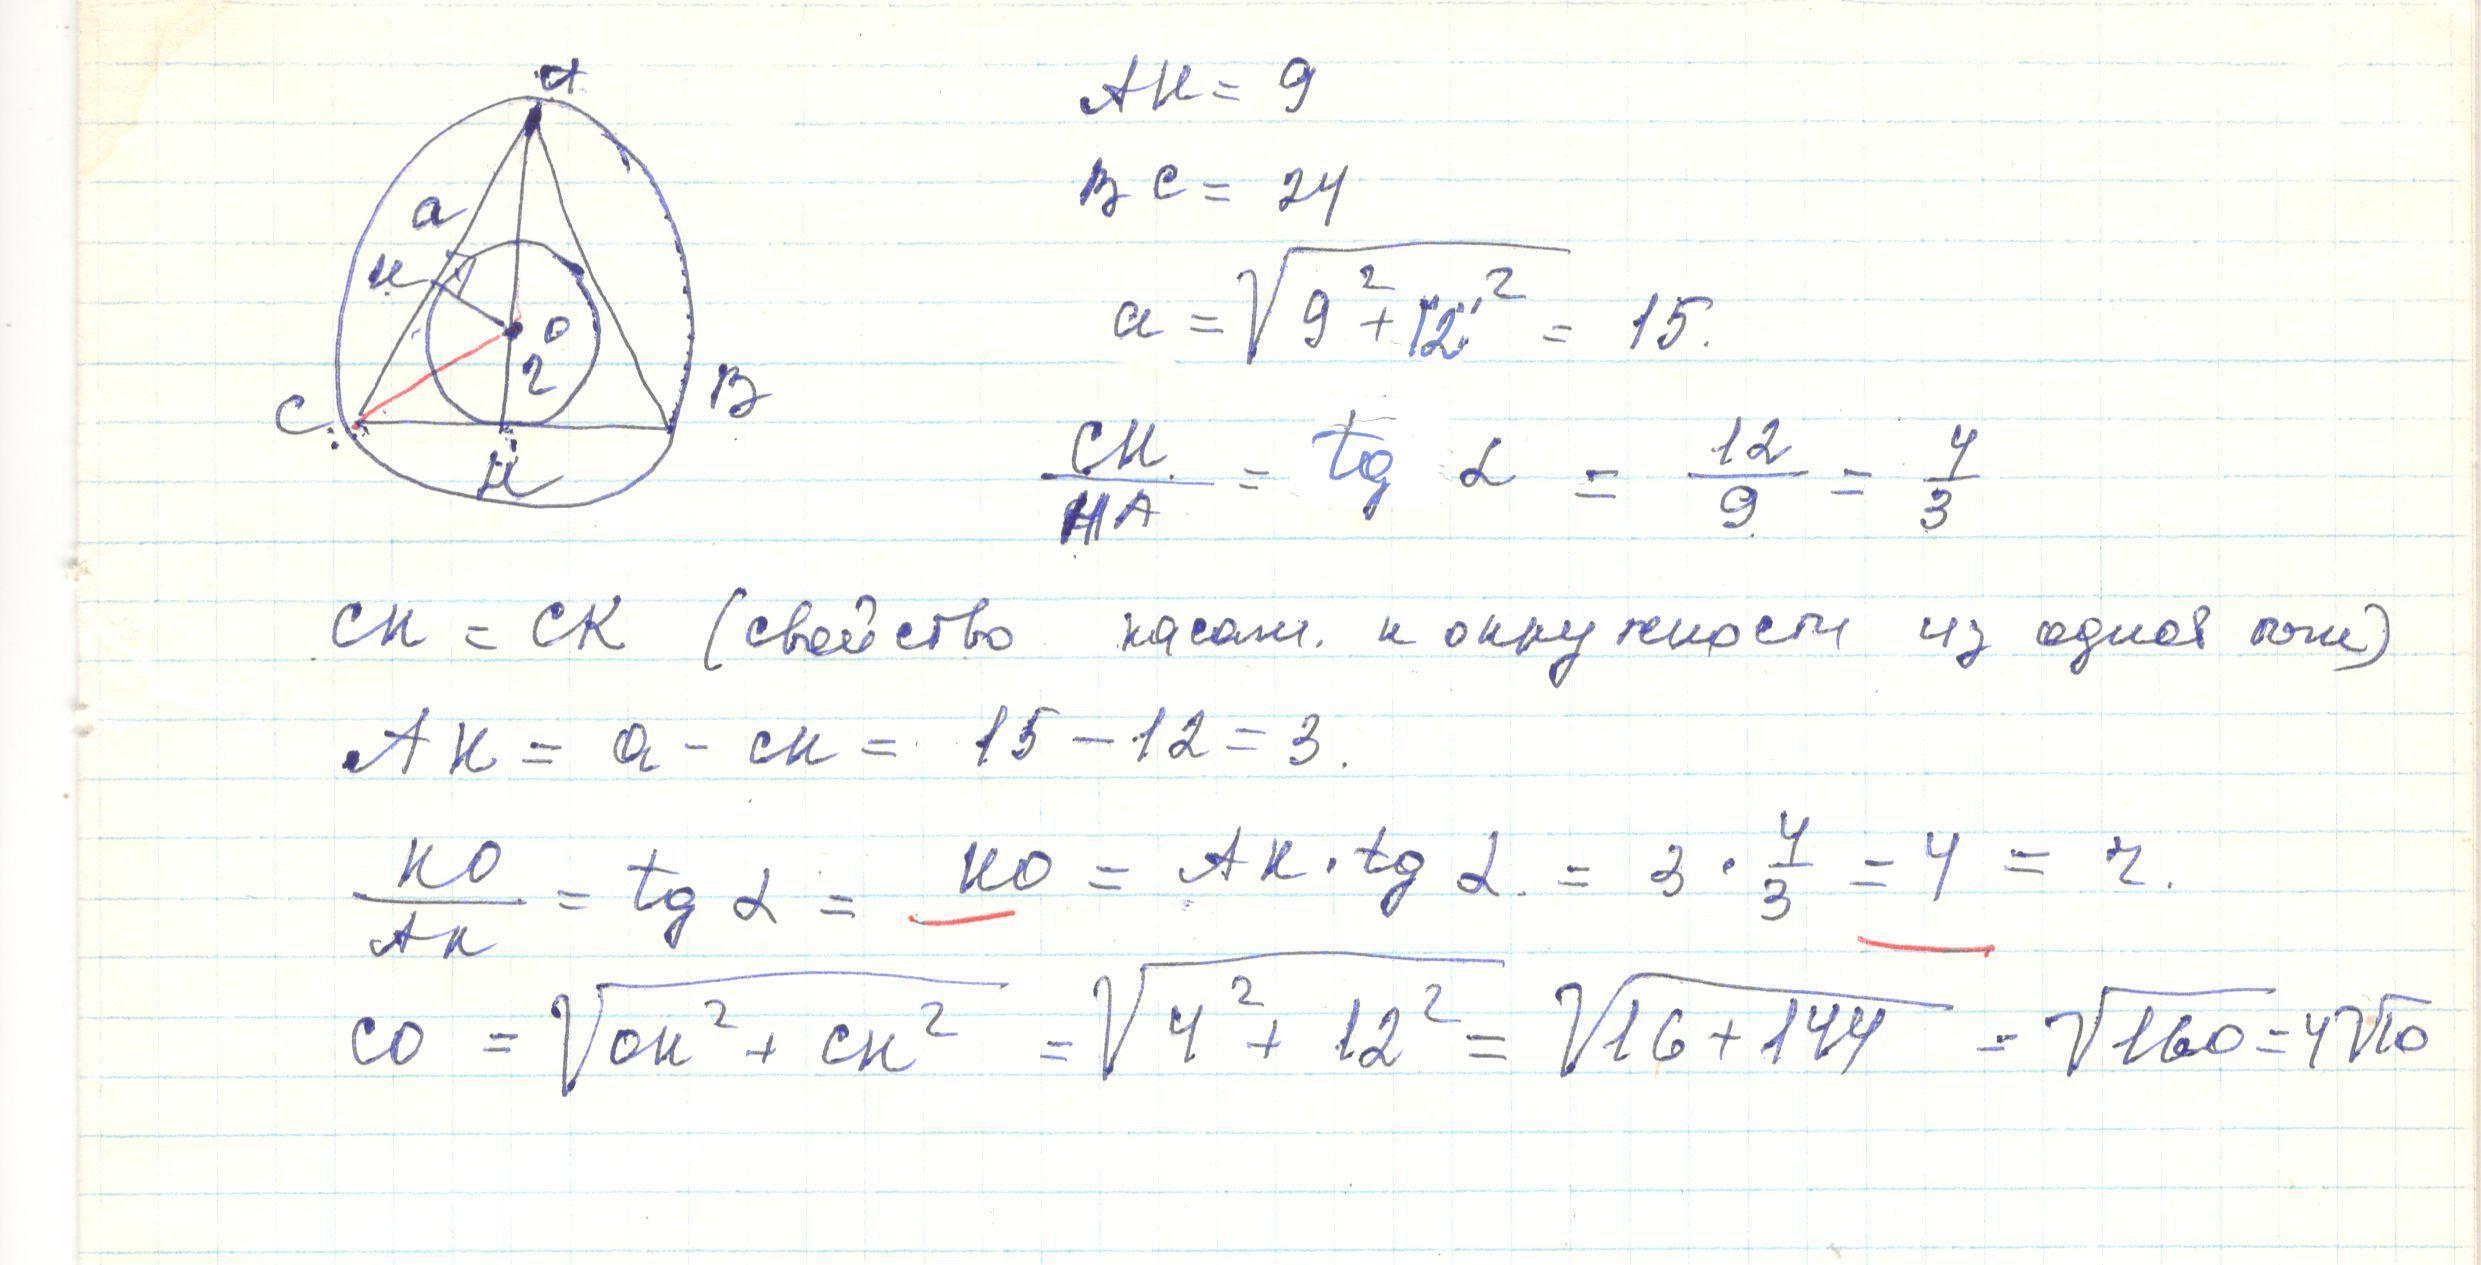 A
a
К
O
r
C
B
H
AH = 9
BC = 24
a = √(9² + 12²) = 15.
CH / HA = tg α = 12/9 = 4/3
CH = CK (свойство касат. к окружности из одной точки)
AK = a - CK = 15 - 12 = 3.
KO / AK = tg α = KO = AK · tg α. = 3 · 4/3 = 4 = r.
CO = √(OK² + CK²) = √(4² + 12²) = √(16 + 144) = √160 = 4√10